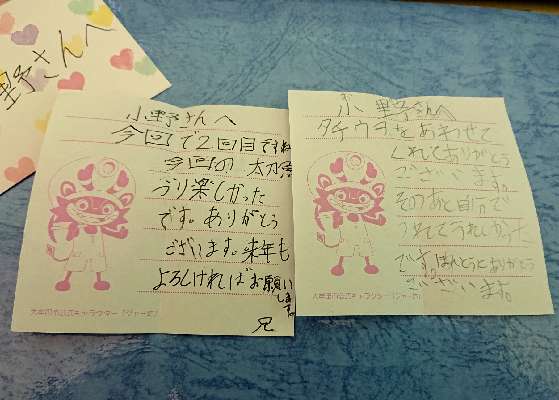 野さんへ
小野さんへ
今回で2回目ですね
今回の太刀魚
づり楽しかった
です。ありがとう
ございます。来年も
よろしければお願い
します。
兄
大牟田市公式キャラクター「ジャー坊」
小野さんへ
タチウオをあわせて
くれてありがとう
ございます。
そのあと自分で
つれてうれしかった
です。ほんとうとありがとう
ございます。
大牟田市公式キャラクター「ジャー坊」